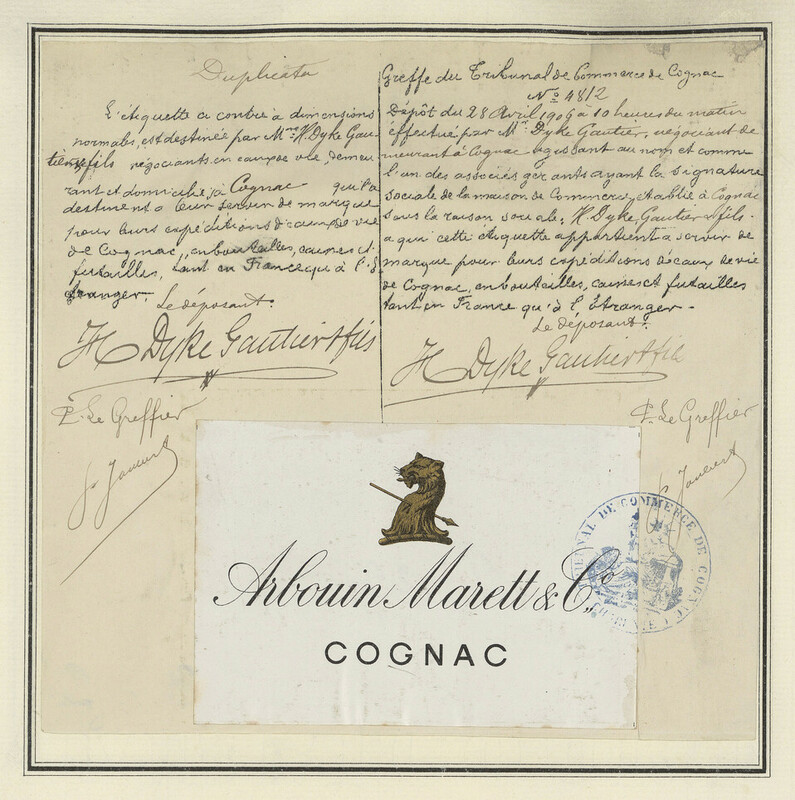 Duplicata
L'étiquette ci contre à dimensions
normales, est destinée par Mrs H. Dyke Gau-
tier & fils négociants en eaux de vie, demeu
rant et domiciliés à Cognac qu'ils
destinent à leur servir de marque
pour leurs expéditions d'eaux de vie
de Cognac, en bouteilles, caisses et
futailles, tant en France qu'à l'É
tranger.
Le déposant:
H Dyke Gautier & fils
P. Le Greffier
Greffe du Tribunal de Commerce de Cognac
No 4812
Dépôt du 28 Avril 1906 à 10 heures du matin
effectué par Mr Dyke Gautier, négociant de
meurant à Cognac agissant au nom et comme
l'un des associés gérants ayant la signature
sociale de la maison de Commerce, établie à Cognac
sous la raison sociale: H. Dyke Gautier & fils -
à qui cette étiquette appartient à servir de
marque pour leurs expéditions d'eaux de vie
de Cognac, en bouteilles, caisses et futailles
tant en France qu'à l'Étranger -
Le déposant:
H Dyke Gautier & fils
P. Le Greffier
Arbouin Marett & Co
COGNAC
TRIBUNAL DE COMMERCE DE COGNAC